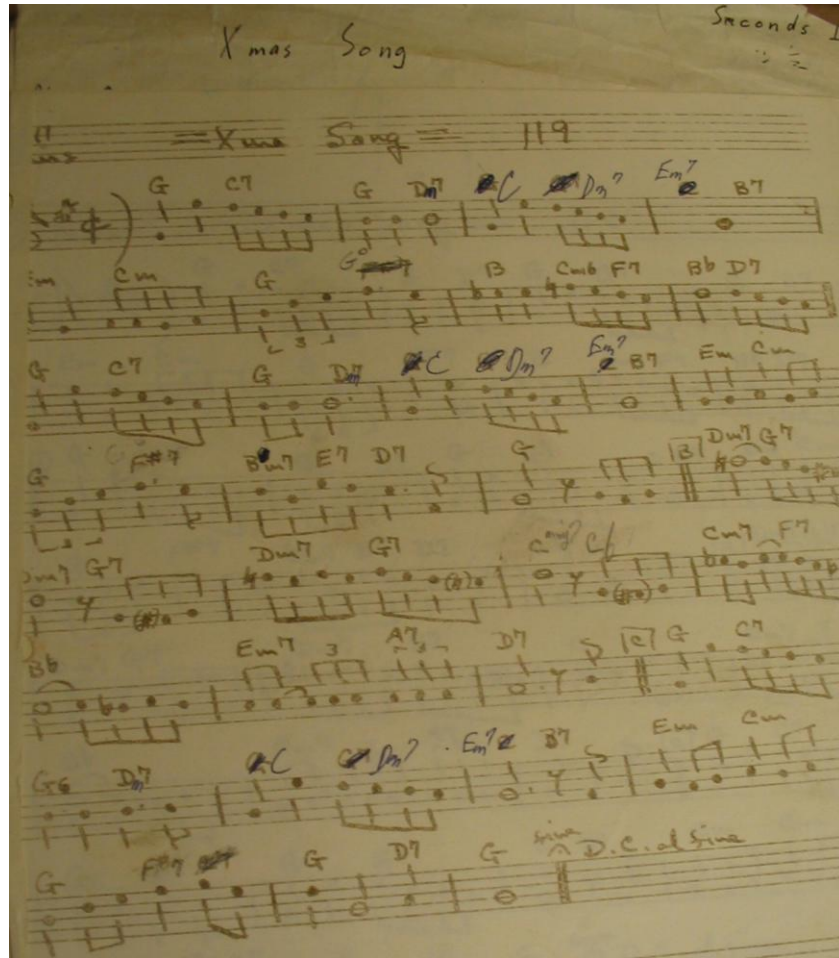 Seconds
Xmas Song
= Xmas Song = 119
G C7 G Dm7 C Dm7 Em7 B7
Cm G G° B Cm6 F7 Bb D7
G C7 G Dm7 C Dm7 Em7 B7 Em Cm
G F#7 Bm7 E7 D7 G B Dm7 G7
Dm7 G7 Dm7 G7 Cmaj7 C6 Cm7 F7
Bb Em7 3 A7 3 D7 C G C7
G6 Dm7 C Dm7 Em7 B7 Em Cm
G F#7 G D7 G Fine D.C. al Fine